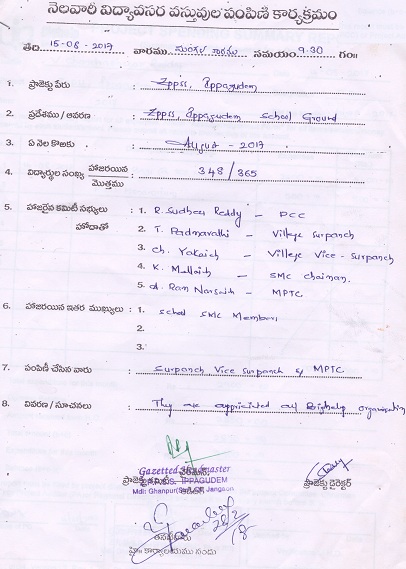 నెలవారీ విద్యావసర వస్తువుల పంపిణి కార్యక్రమం
తేది 15-08-2017 వారము మంగళ వారము సమయం 9-30 గం॥
1. ప్రాజెక్టు పేరు : Zppss, Ippagudem
2. ప్రదేశము / ఆవరణ : Zppss, Ippagudem School Ground
3. ఏ నెల కొఱకు : August - 2017
4. విద్యార్థుల సంఖ్య హాజరయిన / మొత్తము : 348/365
5. హాజరైన కమిటీ సభ్యులు : 1. R. Sudheer Reddy - PCC
హోదాతో 2. T. Padmavathi - Villege Surpanch
3. Ch. Yakaiah - Villege Vice - Surpanch
4. K. Mallaiah - SMC chaiman.
5. Ram Narsaiah - MPTC
6. హాజరయిన ఇతర ముఖ్యులు : 1. School SMC Members
2.
3.
7. పంపిణీ చేసిన వారు : Surpanch Vice Surpanch & MPTC
8. వివరణ / సూచనలు : They are appriciated all organisation
Gazetted Headmaster
Z.P.S.S. IPPAGUDEM
Mdl: Ghanpur(Stn), Dt. Jangaon
ప్రాజెక్టు డైరెక్టర్